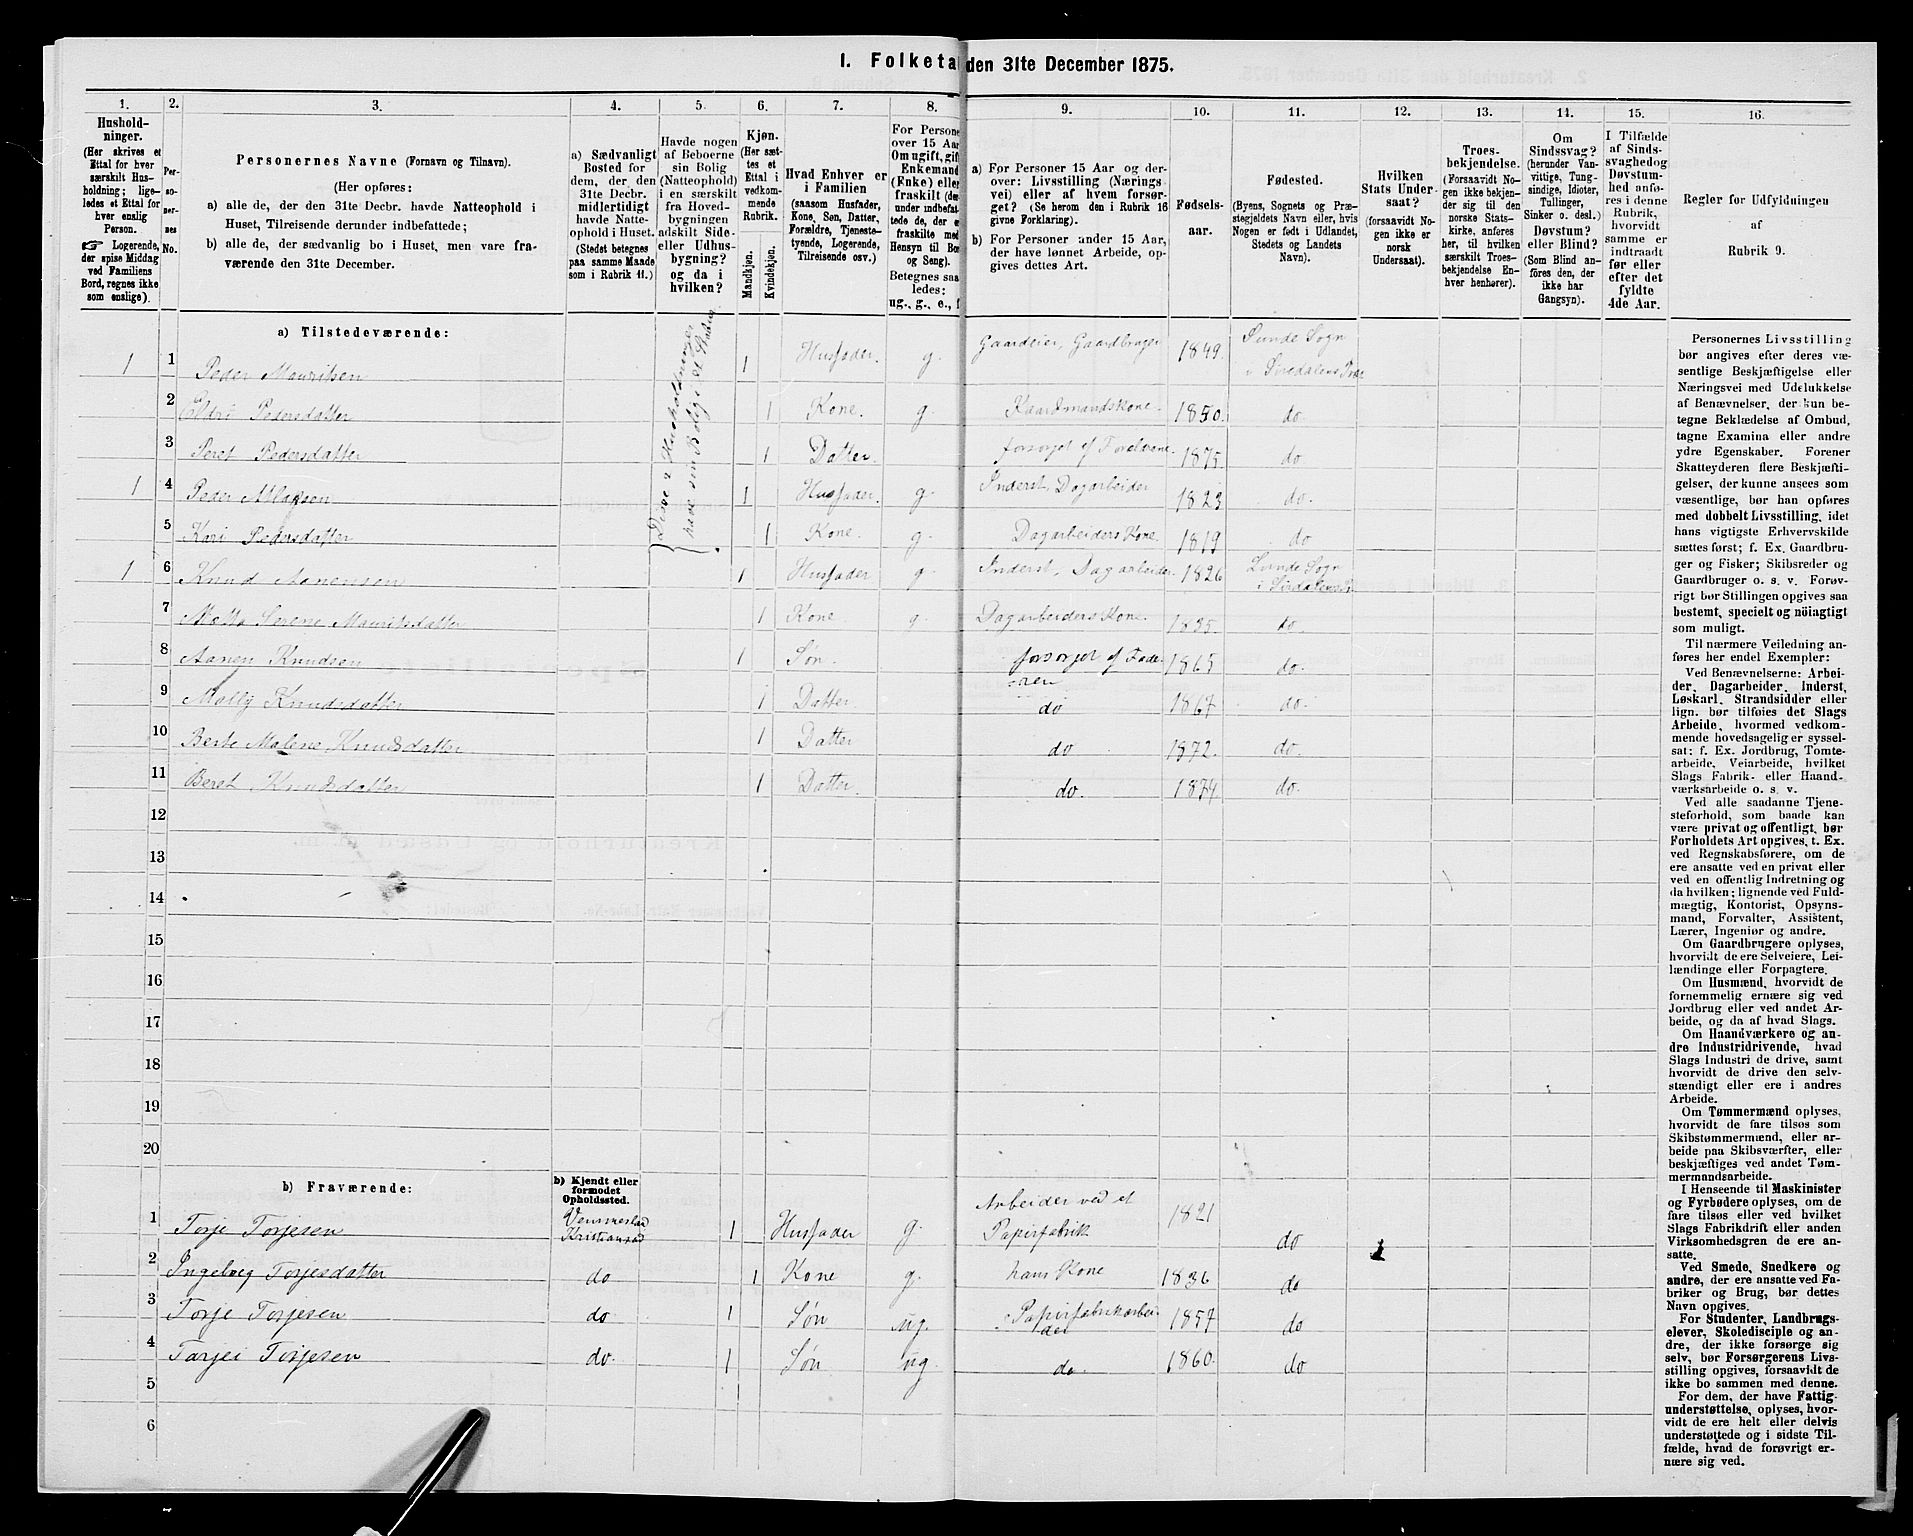 1. Folketa den 31te December 1875.
1. 2. 3. 4. 5. 6. 7. 8. 9. 10. 11. 12. 13. 14. 15. 16.
Hushold-
ninger.
(Her skrives et
Ettal for hver
særskilt Hus-
holdning; lige-
ledes et Ettal for
hver enslig
Person.
☞ Logerende,
der spise Middag
ved Familiens
Bord, regnes ikke
som enslige).
Per-
so-
ner-
nes
No.
Personernes Navne (Fornavn og Tilnavn).
(Her opføres:
a) alle de, der den 31te Decbr. havde Natteophold i
Huset, Tilreisende derunder indbefattede;
b) alle de, der sædvanlig bo i Huset, men vare fra-
værende den 31te December.
a) Sædvanligt
Bosted for
dem, der den
31te Decbr.
midlertidigt
havde Natte-
ophold i Huset.
(Stedet betegnes
paa samme Maade
som i Rubrik 11.)
Havde nogen
af Beboerne
sin Bolig
(Natteophold)
i en særskilt
fra Hoved-
bygningen
adskilt Side-
eller Udhus-
bygning?
og da i
hvilken?
Kjøn.
(Her sæt-
tes et
Ettal i
vedkom-
mende
Rubrik.
Mandkjøn.
Kvindekjøn.
Hvad Enhver er
i Familien
(saasom Husfader,
Kone, Søn, Datter,
Forældre, Tjeneste-
tyende, Logerende,
Tilreisende osv.)
For Persone
over 15 Aar
Om ugift, gift
Enkemand
(Enke) elle
fraskilt (de
under indbefat-
tede de, der e
fraskilte med
Hensyn til Bo
og Seng).
Betegnes saa
ledes:
ug., g., e., f
a) For Personer 15 Aar og der-
over: Livsstilling (Nærings-
vei) eller af hvem forsør-
get? (Se herom den i Rubrik 16
givne Forklaring).
b) For Personer under 15 Aar,
der have lønnet Arbeide, op-
gives dettes Art.
Fødsels-
aar.
Fødested.
(Byens, Sognets og Præ-
stegjeldets Navn eller, hvis
Nogen er født i Udlandet,
Stedets og Landets
Navn).
Hvilken
Stats Under-
saat?
(forsaavidt No-
gen ikke er
norsk
Undersaat).
Troes-
bekjendelse.
(Forsaavidt No-
gen ikke bekjen-
der sig til den
norske Stats-
kirke, anføres
her, til hvilken
særskilt Troes-
bekjendelse En-
hver henhører).
Om
Sindssvag?
(herunder Van-
vittige, Tung-
sindige, Idioter,
Tullinger,
Sinker o. desl.)
Døvstum?
eller Blind?
(Som Blind an-
føres den, der
ikke har
Gangsyn).
I Tilfælde
af Sinds-
svaghed og
Døvstum-
hed anfø-
res i denne
Rubrik,
hvorvidt
samme er
indtraadt
før eller
efter det
fyldte
4de Aar.
Regler for Udfyldningen
af
Rubrik 9.
a) Tilstedeværende:
Disse 2 Husholdninger
have sin Bolig i et
1 1 Peder Mauritsen 1 Husfader. g. Gaardeier, Gaardbruger 1849. Lunde Sogn
i Siredalens Præ
2 Pedersdatter 1 Kone. g. Gaardmandskone. 1850. do.
3 Seret Pedersdatter 1 Datter. forsørget af Forældrene. 1875. do
1 4 Peder Atlaksen 1 Husfader. g. Inderst, Dagarbeider 1823 do.
5 Kari Pedersdatter 1 Kone. g. Dagarbeiders Kone. 1819 do
1 6 Knud Aanensen 1 Husfader g. Inderst, Dagarbeider. 1826 Lunde Sogn
i Sirdalens P.
7 Metta Serene Mauritsdatter 1 Kone g. Dagarbeiders Kone. 1835. do.
8 Aanen Knudsen 1 Søn. forsørget af Fade-
ren 1865 do.
9 Mally Knudsdatter 1 Datter. do 1867 do.
10 Berte Malene Knudsdatter 1 Datter do 1872. do.
11 Beret Knudsdatter 1 Datter. do. 1874. do.
12
13
14
15
16
17
18
19
20
b) Fraværende:
b) Kjendt eller
formodet
Opholdssted.
1 Torje Torjesen Vennesla
Kristiansad 1 Husfader g. Arbeider ved et
Papirfabrik 1821 do
2 Ingeborg Torjesdatter do 1 Kone g. hans Kone 1836 do
3 Torje Torjesen do 1 Søn ug. Papirfabrikarbei-
der 1857 do
4 Tarjei Torjesen do. 1 Søn ug do. 1860. do
5
6
Personernes Livsstilling
bør angives efter deres væ-
sentlige Beskjæftigelse eller
Næringsvei med Udelukkelse
af Benævnelser, der kun be-
tegne Beklædelse af Ombud,
tagne Examina eller andre
ydre Egenskaber. Forener
Skatteyderen flere Beskjæfti-
gelser, der kunne ansees som
væsentlige, bør han opføres
med dobbelt Livsstilling, idet
hans vigtigste Erhvervskilde
sættes først; f. Ex. Gaardbru-
ger og Fisker; Skibsreder og
Gaardbruger o. s. v. Forøv-
rigt bør Stillingen opgives saa
bestemt, specielt og nøiagtigt
som muligt.
Til nærmere Veiledning an-
føres her endel Exempler:
Ved Benævnelserne: Arbei-
der, Dagarbeider, Inderst,
Løskarl, Strandsidder eller
lign. bør tilføies det Slags
Arbeide, hvormed vedkom-
mende hovedsagelig er syssel-
sat; f. Ex. Jordbrug, Tomte-
arbeide, Veiarbeide, hvilket
Slags Fabrik- eller Haand-
værksarbeide o. s. v.
Ved alle saadanne Tjene-
steforhold, som baade kan
være privat og offentligt, bør
Forholdets Art opgives, t. Ex.
ved Regnskabsførere, om de
ere ansatte ved en privat eller
ved en offentlig Indretning og
da hvilken; lignende ved Fuld-
mægtig, Kontorist, Opsyns-
mand, Forvalter, Assistent,
Lærer, Ingeniør og andre.
Om Gaardbrugere oplyses,
hvorvidt de ere Selveiere, Lei-
lændinge eller Forpagtere.
Om Husmænd, hvorvidt de
fornemmelig ernære sig ved
Jordbrug eller ved andet Ar-
beide, og da af hvad Slags.
Om Haandværkere og an-
dre Industridrivende, hvad
Slags Industri de drive, samt
hvorvidt de drive den selv-
stændigt eller ere i andres
Arbeide.
Om Tømmermænd oplyses,
hvorvidt de fare tilsøs som
Skibstømmermænd, eller ar-
beide paa Skibsværfter, eller
beskjæftiges ved andet Tøm-
mermandsarbeide.
I Henseende til Maskinister
og Fyrbødere oplyses, om de
fare tilsøs eller ved hvilket
Slags Fabrikdrift eller anden
Virksomhedsgren de ere an-
satte.
Ved Smede, Snedkere og
andre, der ere ansatte ved Fa-
briker og Brug, bør dettes
Navn opgives.
For Studenter, Landbrugs-
elever, Skoledisciple og an-
dre, der ikke forsørge sig
selv, bør Forsørgerens Livs-
stilling opgives, forsaavidt de
ikke bo sammen med denne.
For dem, der have Fattig-
understøttelse, oplyses, hvor-
vidt de ere helt eller delvis
understøttede og i sidste Til-
fælde, hvad de forøvrigt er-
nære sig ved.